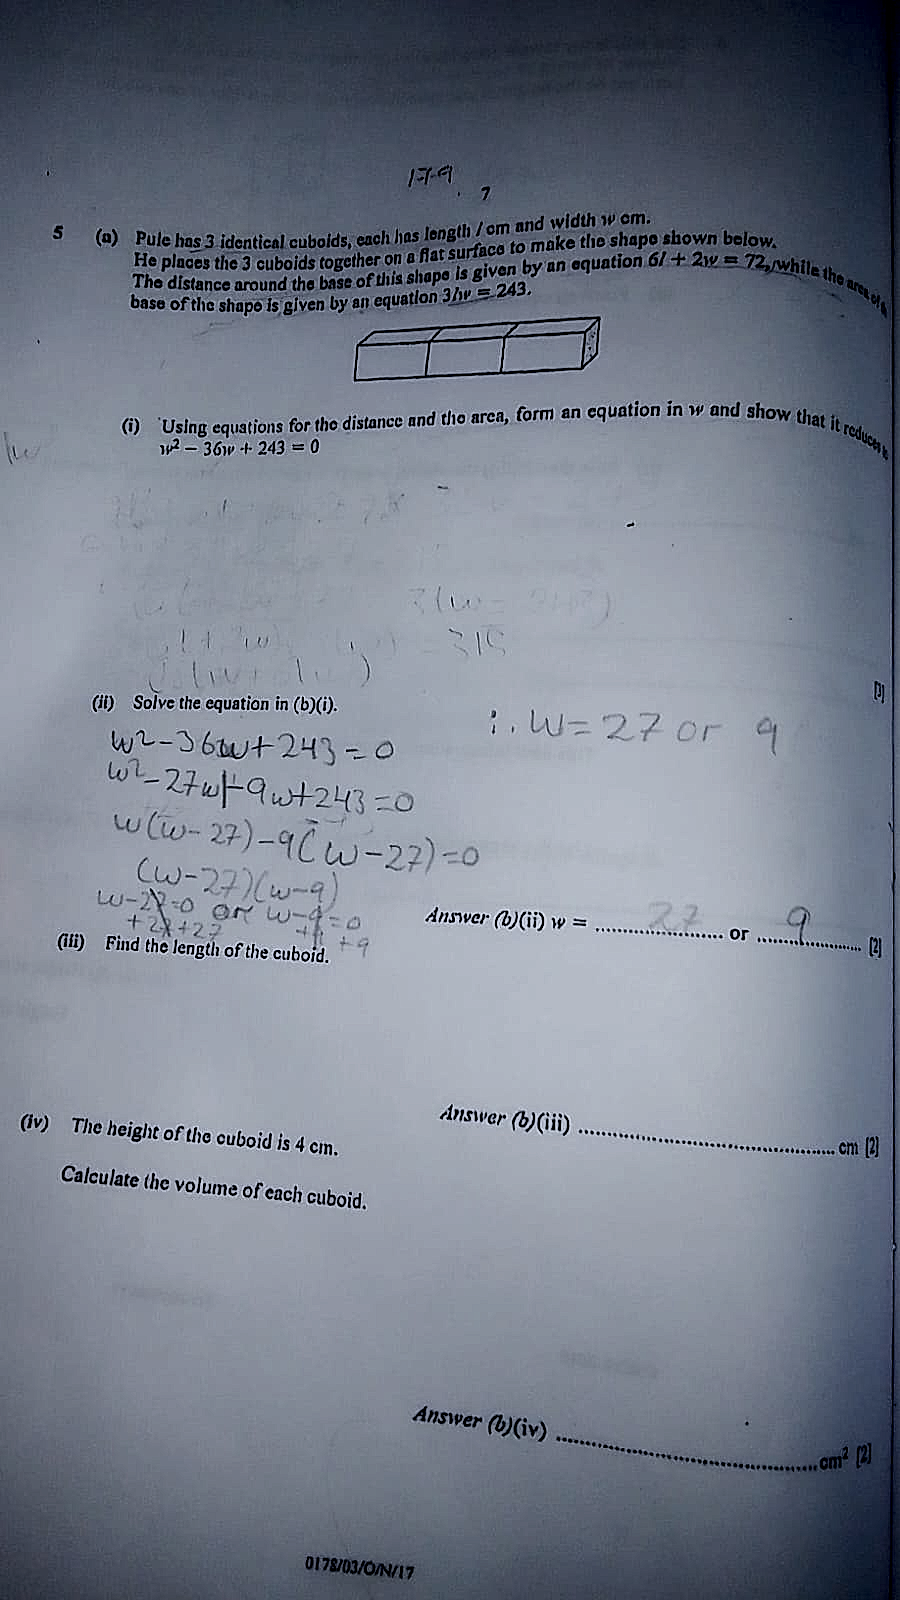 17-9
7
5 (a) Pule has 3 identical cuboids, each has length l cm and width w cm.
He places the 3 cuboids together on a flat surface to make the shape shown below.
The distance around the base of this shape is given by an equation 6l + 2w = 72, while the area of
base of the shape is given by an equation 3lw = 243.
(i) Using equations for the distance and the area, form an equation in w and show that it reduces
w² – 36w + 243 = 0
lw
315
[3]
(ii) Solve the equation in (b)(i).
∴ w=27 or 9
w²-36w+243=0
w²-27w-9w+243=0
w(w-27)-9(w-27)=0
(w-27)(w-9)
w-27=0 or w-9=0
+27+27 +9 +9
Answer (b)(ii) w = 27 or 9 [2]
(iii) Find the length of the cuboid.
Answer (b)(iii) cm [2]
(iv) The height of the cuboid is 4 cm.
Calculate the volume of each cuboid.
Answer (b)(iv) cm² [2]
0178/03/O/N/17